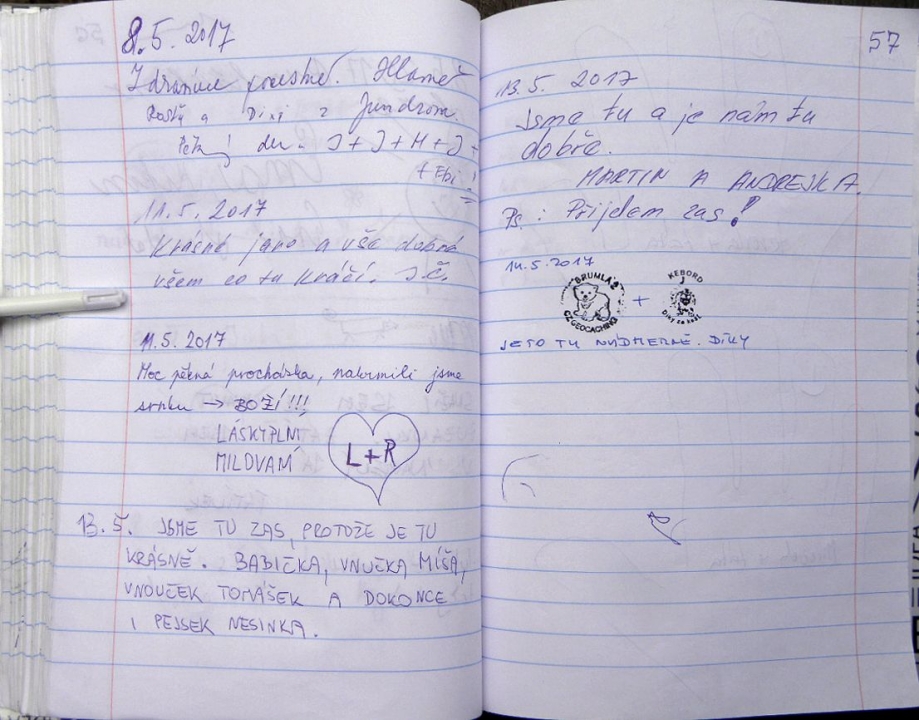 8.5. 2017
Zdravíme všechny. Hlavně
Rosťu a Dixi z Jundrova.
Pěkný den. J + J + H + J +
+ Ebi!
11.5. 2017
Krásné jaro a vše dobré
všem co tu kráčí. J.Č.
11.5. 2017
Moc pěkná procházka, nakrmili jsme
srnku → BOŽÍ!!!
LÁSKYPLNÍ
MILOVANÍ
L+R
13.5. JSME TU ZAS, PROTOŽE JE TU
KRÁSNĚ. BABIČKA, VNUČKA MÍŠA,
VNOUČEK TOMÁŠEK A DOKONCE
I PEJSEK NESINKA.
57
13.5. 2017
Jsme tu a je nám tu
dobře.
MARTIN A ANDREJKA.
Ps.: Přijdem zas!
14.5.2017
BRUMLA2
CZ GEOCACHING
+
KEBORD
JE TO TU NÁDHERNÉ. DÍKY